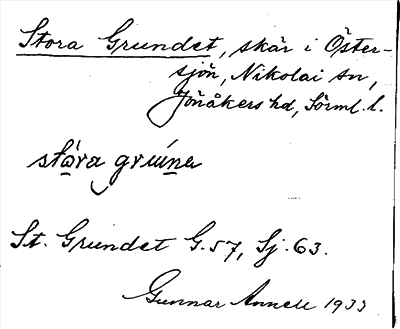 Stora Grundet, skär i Öster-
sjön, Nikolai sn,
Jönåkers hd, Sörml. l.
stára
St. Grundet G. 57, Sj. 63.
Gunnar Annell 1933